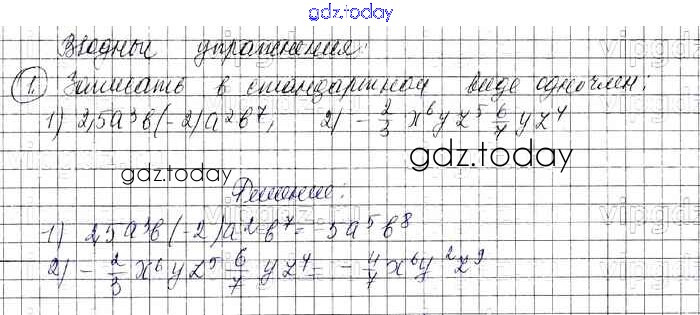 gdz.today
Вводные упражнения:
1. Записать в стандартном виде одночлен:
1) 2,5a³b(-2)a²b⁷, 2) -2/3 x⁶yz⁵ 6/7 yz⁴
gdz.today
gdz.today
Решение:
1) 2,5a³b(-2)a²b⁷ = -5a⁵b⁸
2) -2/3 x⁶yz⁵ 6/7 yz⁴ = -4/7 x⁶y²z⁹